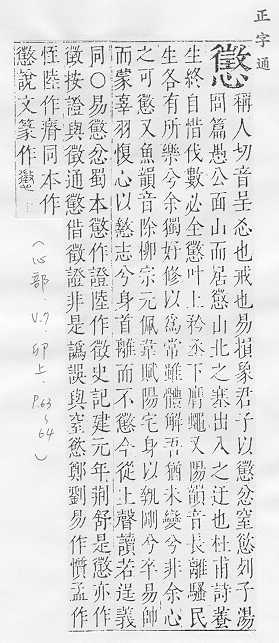 正字通
懲
稱人切音呈忿也戒也易損象君子以懲忿窒慾列子湯
問篇愚公面山而居懲山北之塞出入之迂也杜甫詩養
生終自惜伐數必全懲叶上矜丞下膺蠅又陽韻音長離騷民
生各有所樂兮余獨好修以爲常雖體解吾猶未變兮非余心
之可懲又魚韻音除柳宗元佩韋賦陽宅身以執剛兮卒易師
而蒙辜羽愎心以懸志兮身首離而不懲今從上聲讀若逞義
同○易懲忿蜀本懲作證陸作徵史記建元年荊舒是懲亦作
徵按證與徵通懲借徵證非是譌誤與窒慾鄭劉易作懫孟作
恎陸作同本作
懲說文篆作懲
(心部.V.7.卯上.P.63~64)